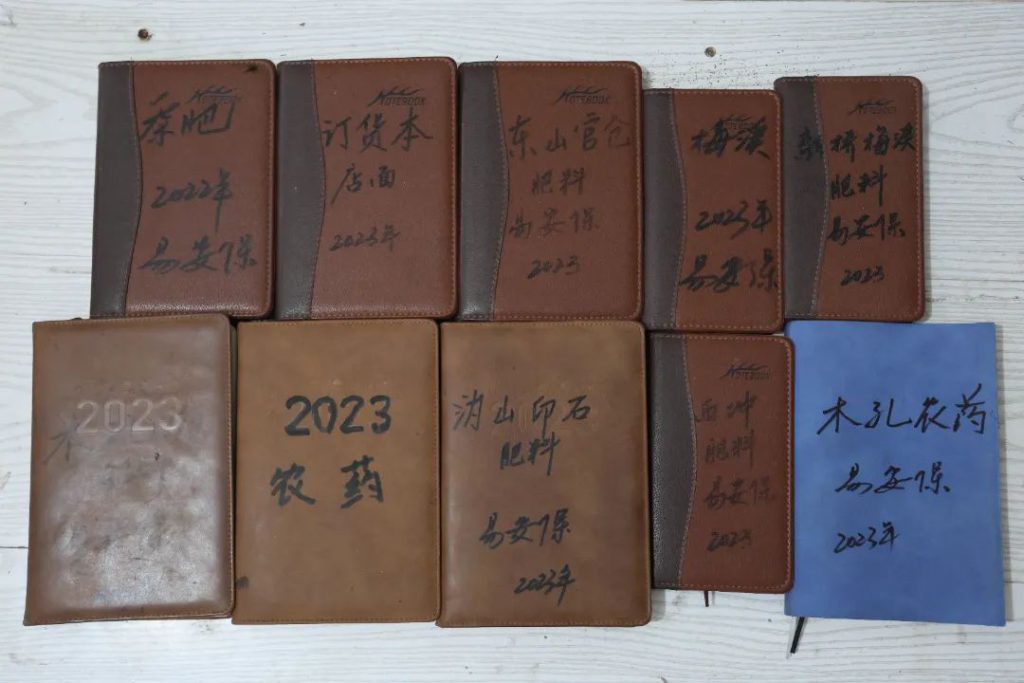 NOTEBOOK
肥
2022年
易安保
NOTEBOOK
订货本
店面
2023年
NOTEBOOK
东山官仓
肥料
易安保
2023
梅溪
2023年
易安保
桥梅溪
肥料
易安保
2023
2023
木
2023
农药
山印石
肥料
易安保
2023年
NOTEBOOK
冲
肥料
易安保
2023
木孔农药
易安保
2023年